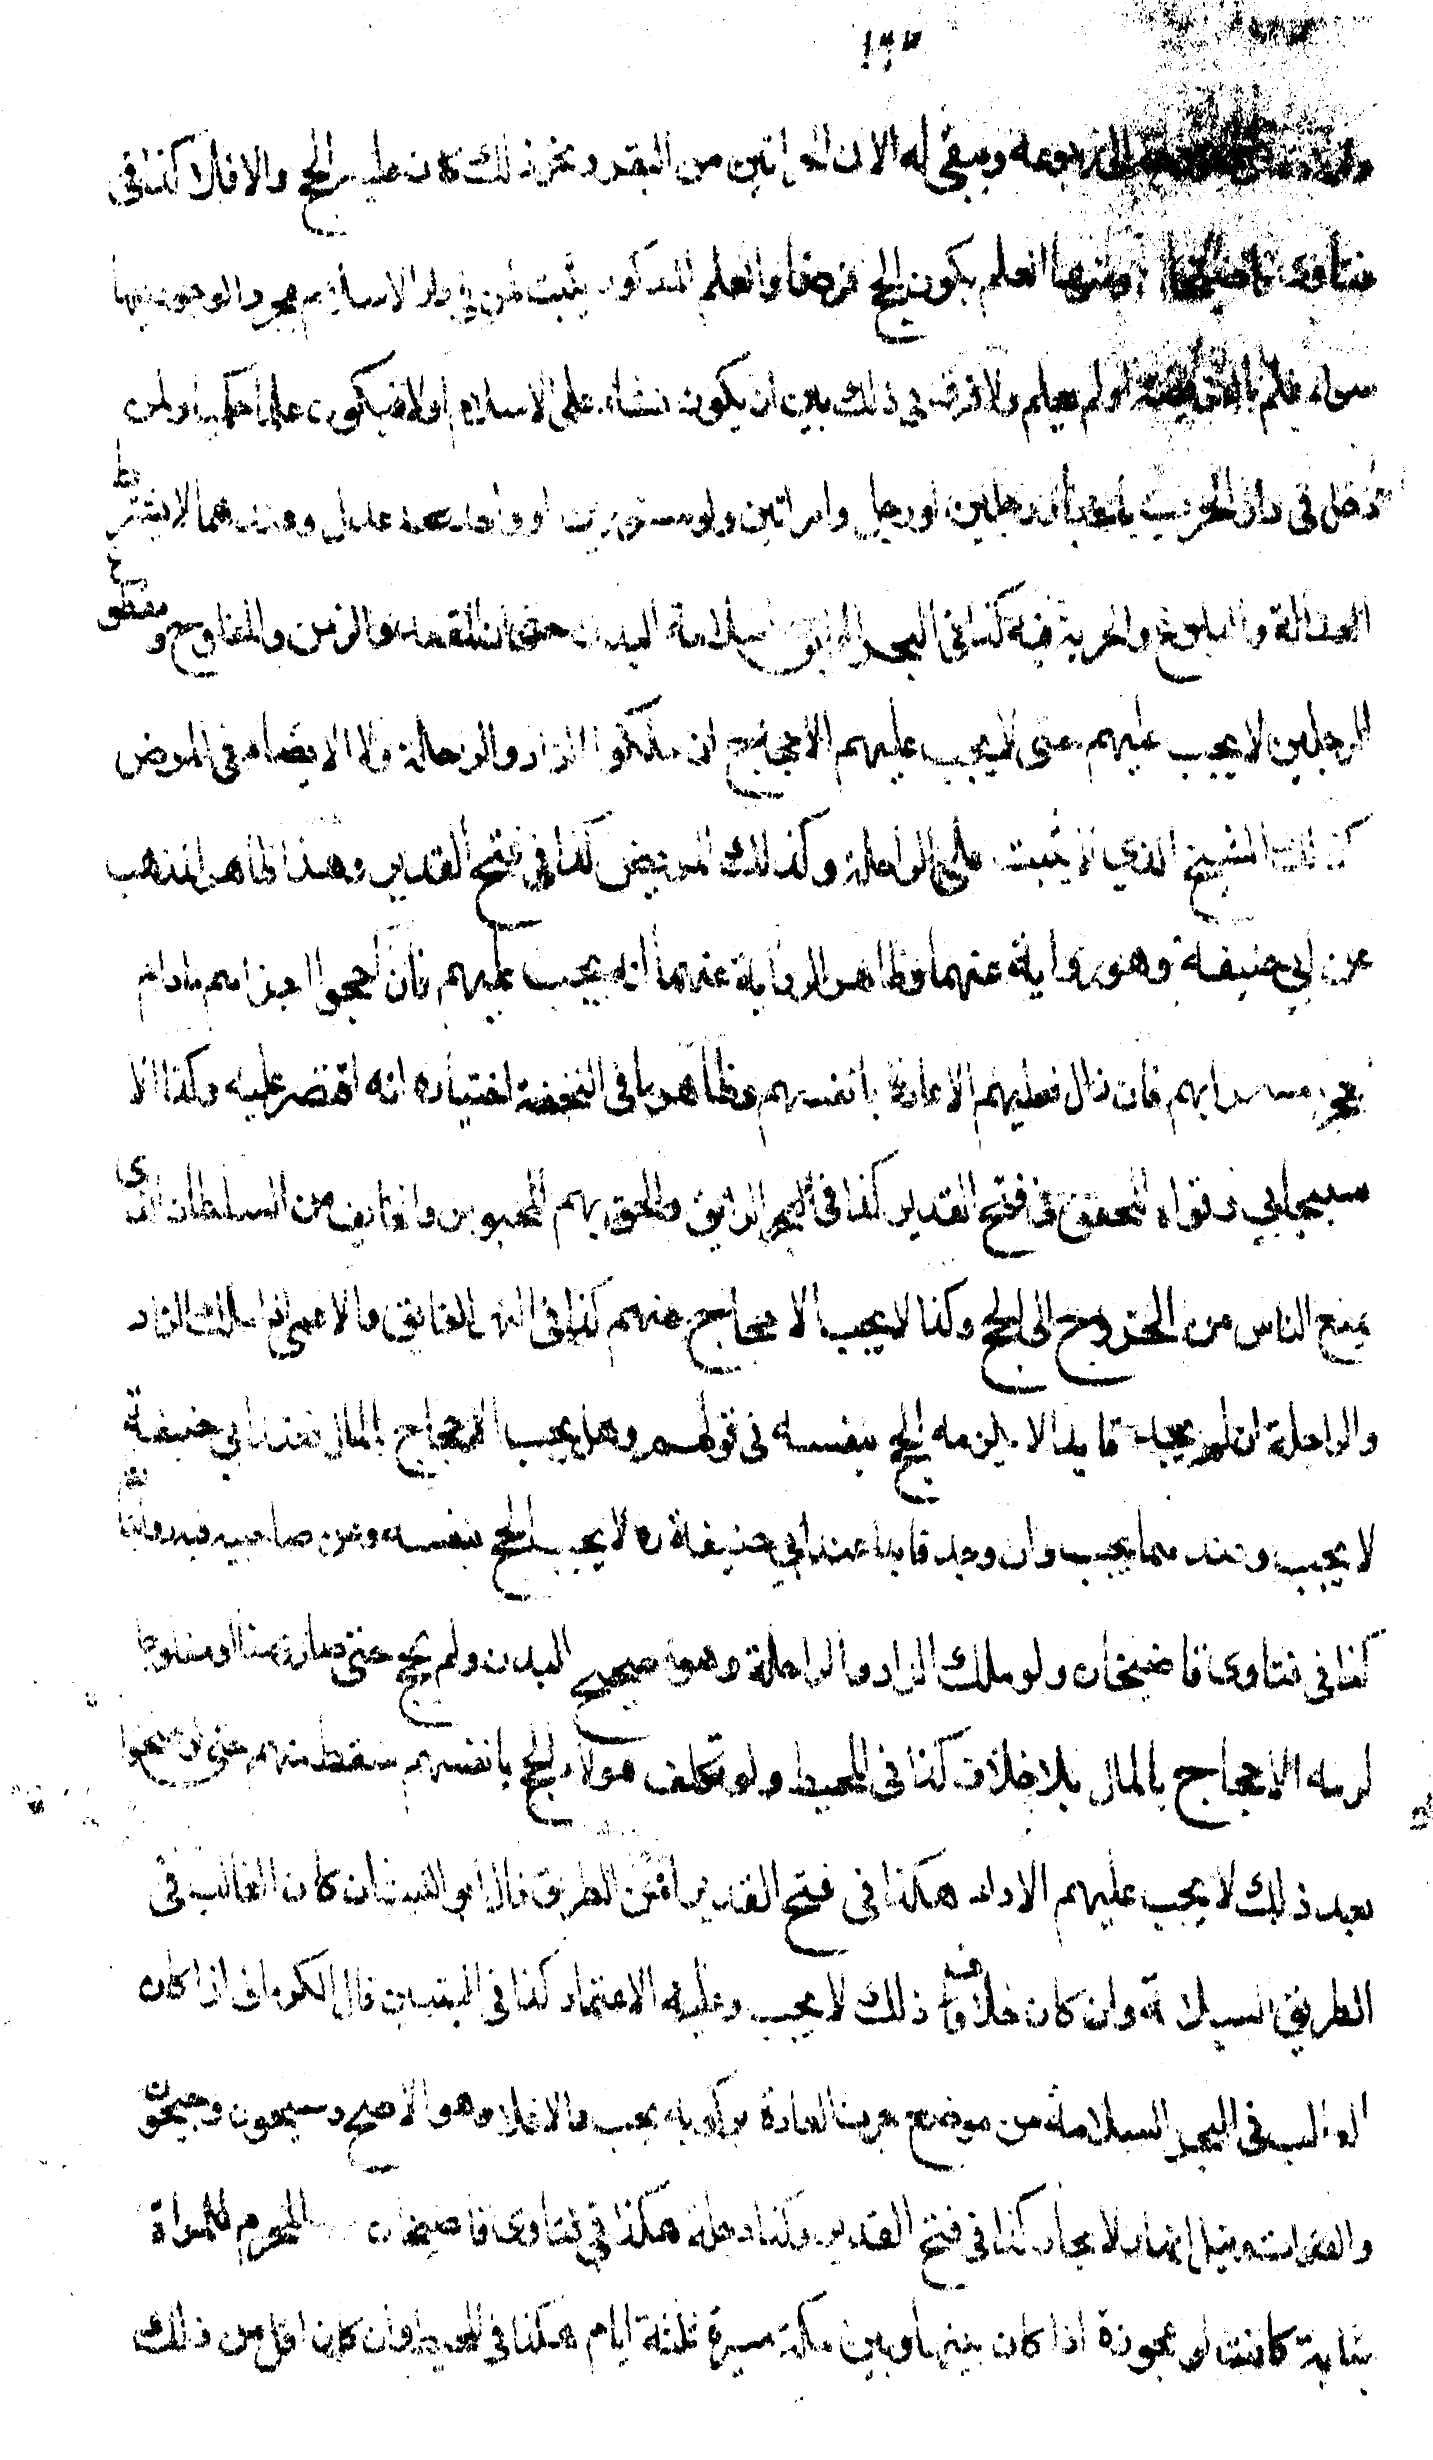 ١٩٣
وبقى له الات الحراثين من البقر ونحو ذلك كان عليه الحج والا فلا كذا فى
فتاوى قاضيخان ومنها العلم بكون الحج فرضا والعلم المذكور يثبت لمن فى دار الاسلام بمجرد الوجود فيها
سواء علم بالفرضية او لم يعلم ولا فرق فى ذلك بين ان يكون نشاء على الاسلام او لا فيكون علما حكميا ولمن
دخل فى دار الحرب باخبار رجلين او رجل وامراتين ولو مستورين او واحد عدل وعندهما لا يشترط
العدالة والبلوغ والحرية فيه كذا فى البحر الرائق سلامة البدن حتى ان المقعد والزمن والمفلوج ومقطوع
الرجلين لا يجب عليهم حتى لا يجب عليهم الاحجاج ان ملكوا الزاد والراحلة ولا الايصاء فى المرض
كذلك الشيخ الذي لا يثبت على الراحلة وكذلك المريض كذا فى فتح القدير وهذا ظاهر المذهب
عن ابي حنيفة وهو رواية عنهما وظاهر الرواية عنهما انه يجب عليهم فان احجوا اجزاهم مادام
العجز مستمرا بهم فان زال فعليهم الاعادة بانفسهم وظاهر ما فى التحفة اختياره انه اقتصر عليه وكذا الا
سبيجابي وقواه المحقق فى فتح القدير كذا فى البحر الرائق والحق بهم المحبوس والخايف من السلطان الذى
يمنع الناس من الخروج الى الحج وكذا لا يجب الاحجاج عنهم كذا فى النهر الفايق والاعمى اذا ملك الزاد
والراحلة ان لم يجد قايدا لا يلزمه الحج بنفسه فى قولهم وهل يجب الاحجاج بالمال فعند ابي حنيفة
لا يجب وعندهما يجب وان وجد قايدا عند ابي حنيفة ره لا يجب الحج بنفسه وعن صاحبيه فيه روايتان
كذا فى فتاوى قاضيخان ولو ملك الزاد والراحلة وهو صحيح البدن ولم يحج حتى صار زمنا او مفلوجا
لزمه الاحجاج بالمال بلا خلاف كذا فى المحيط ولو تكلف هولاء الحج بانفسهم سقط عنهم حتى لو صحوا
بعد ذلك لا يجب عليهم الاداء هكذا فى فتح القدير امن الطريق قال ابو الليث ان كان الغالب فى
الطريق السلامة وان كان خلاف ذلك لا يجب وعليه الاعتماد كذا فى التبيين قال الكرمانى اذا كان
الغالب فى البحر السلامة من موضع جرت العادة بركوبه يجب والا فلا وهو الاصح وسيحون وجيحون
والفرات والنيل انهار لا بحار كذا فى فتح القدير وكذا دجلة هكذا فى فتاوى قاضيخان المحرم للمراة
شابة كانت او عجوزة اذا كان بينها وبين مكة مسيرة ثلثة ايام هكذا فى المحيط وان كان اقل من ذلك